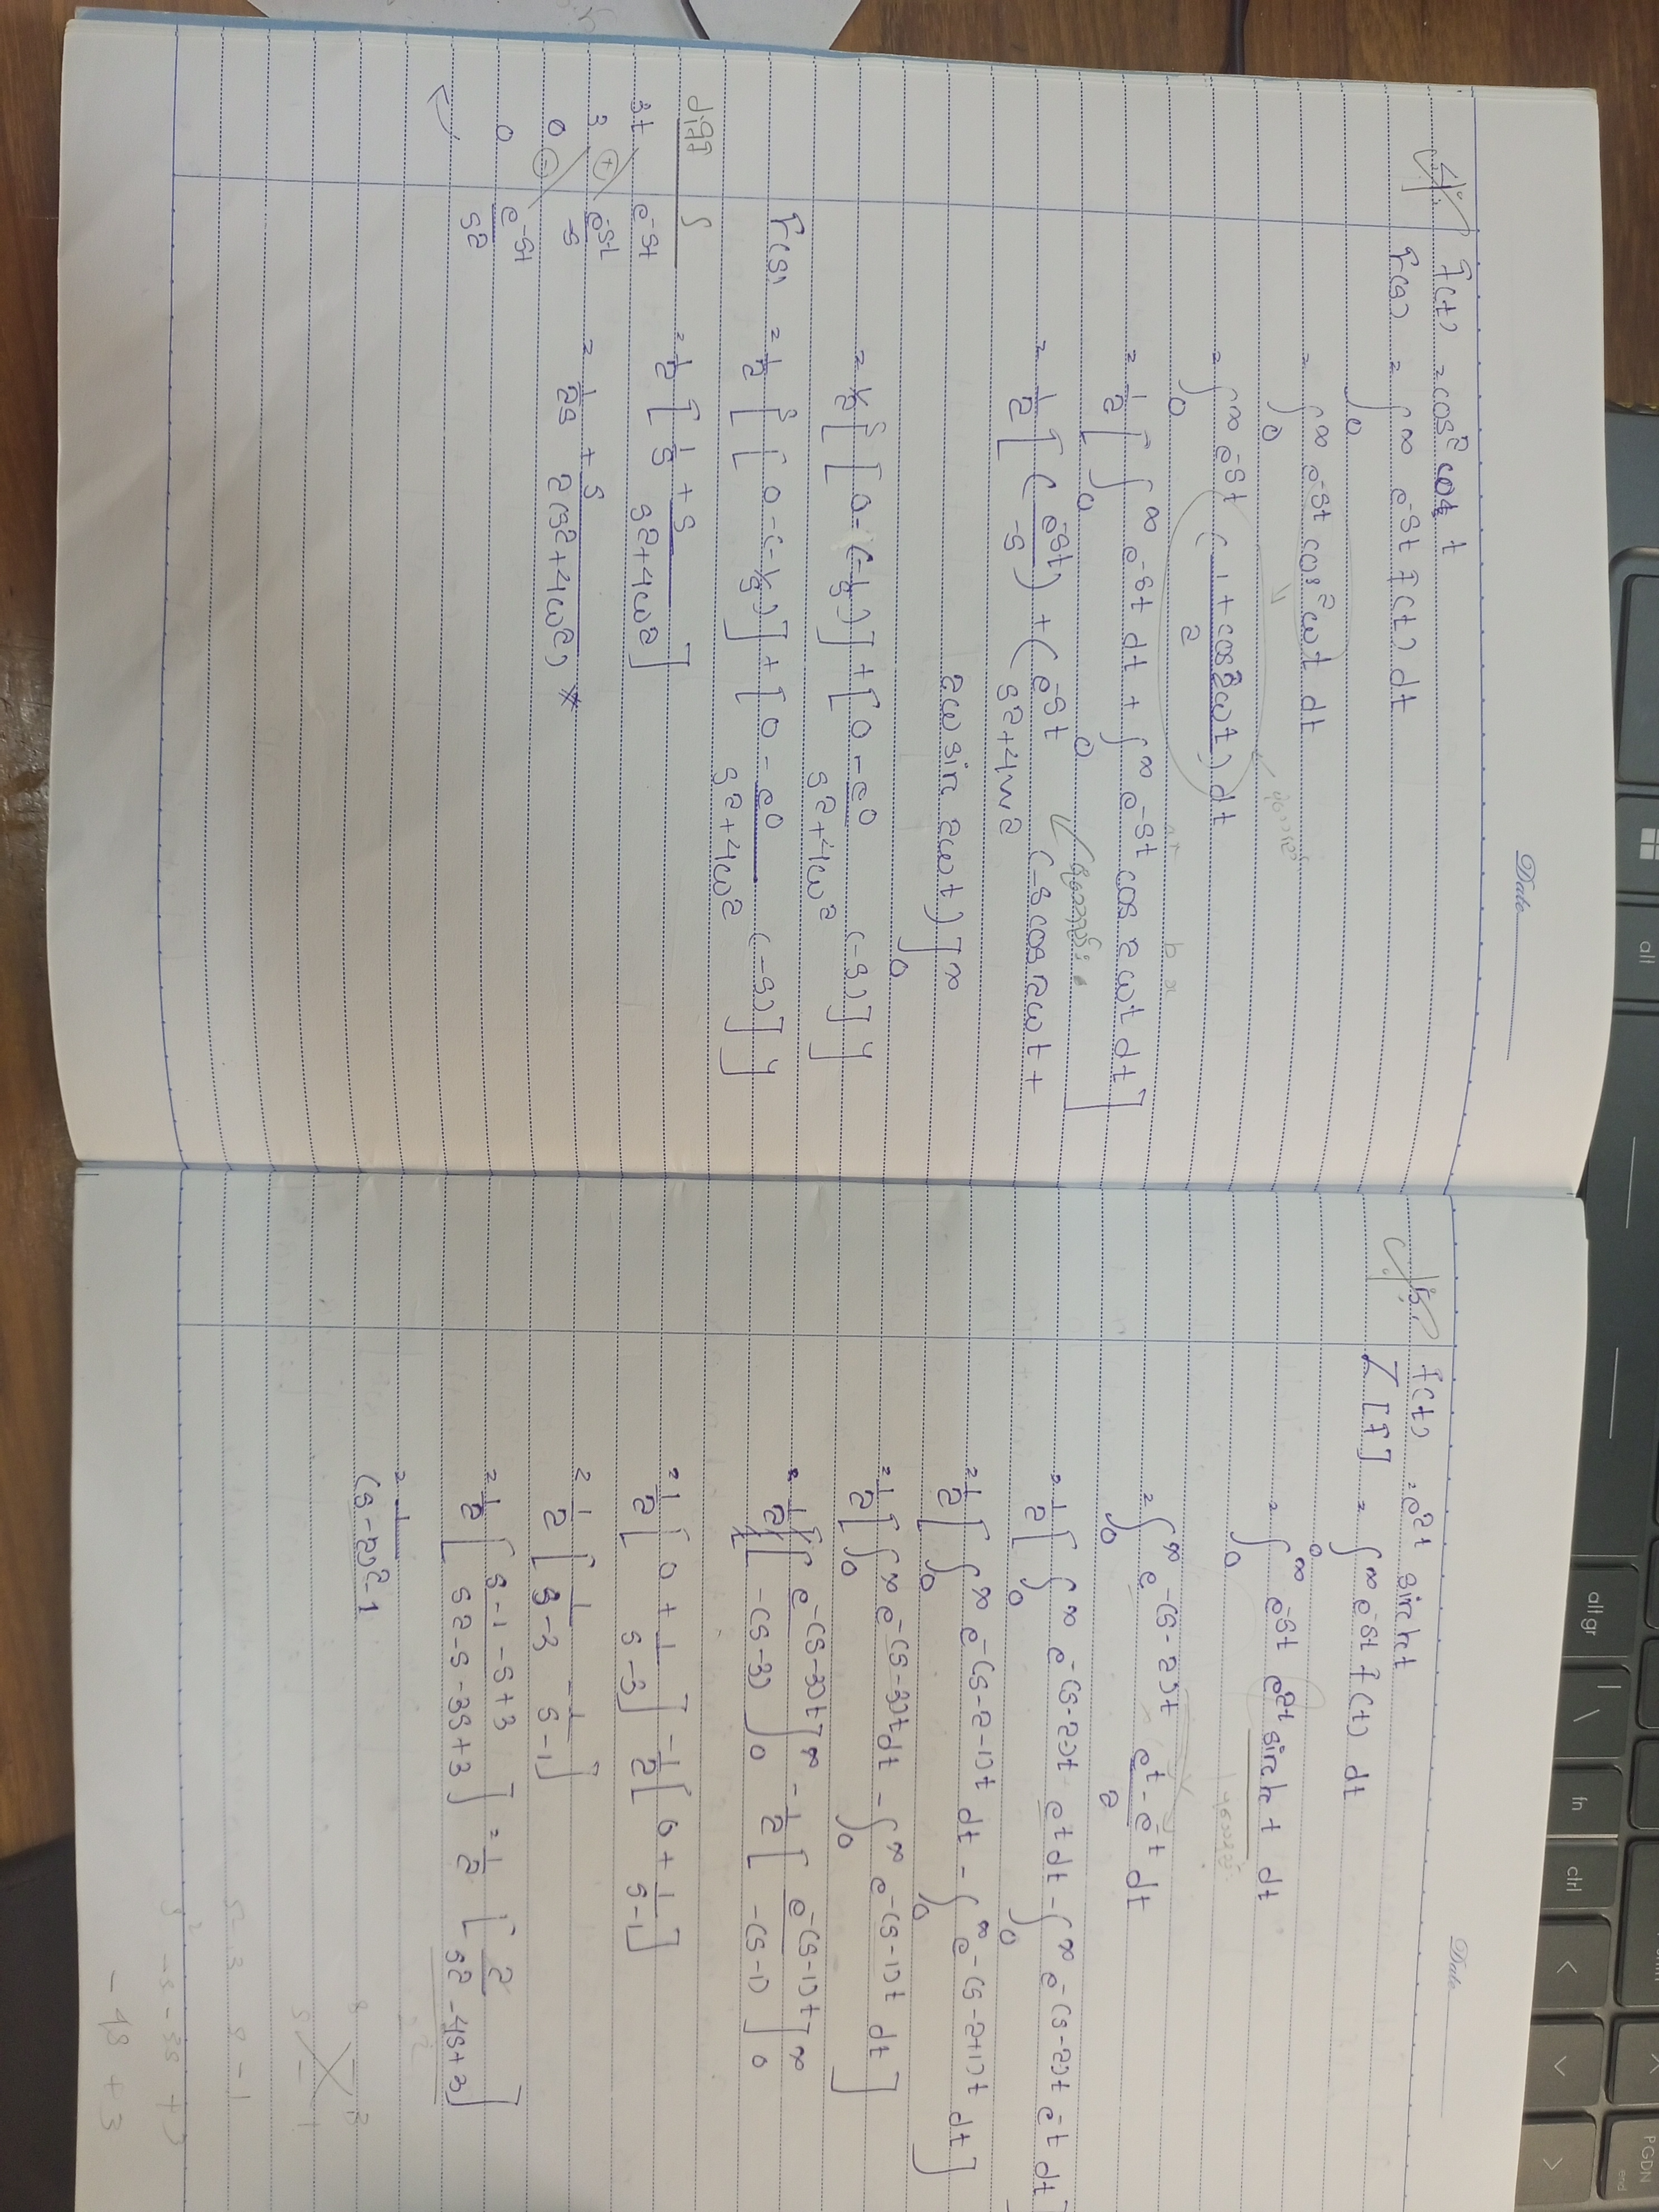 Date
4.
f(t) = cos² ωt
F(s) = ∫₀^∞ e^-st f(t) dt
= ∫₀^∞ e^-st cos² ωt dt
= ∫₀^∞ e^-st (1 + cos 2ωt / 2) dt
= 1/2 [ ∫₀^∞ e^-st dt + ∫₀^∞ e^-st cos 2ωt dt ]
= 1/2 [ (e^-st / -s) + (e^-st / s²+4ω² (-s cos 2ωt +
2ω sin 2ωt) ]₀^∞
= 1/2 { [0 - (-1/s)] + [0 - e⁰ / s²+4ω² (-s)] }
F(s) = 1/2 { [0 - (-1/s)] + [0 - e⁰ / s²+4ω² (-s)] }
= 1/2 [ 1/s + s / s²+4ω² ]
= 1/2s + s / 2(s²+4ω²) *
ดิฟ ∫
3t e^-st
3 + e^-st / -s
0 - e^-st / s²
0
Date
5.
f(t) = e^2t sinh t
L[f] = ∫₀^∞ e^-st f(t) dt
= ∫₀^∞ e^-st e^2t sinh t dt
= ∫₀^∞ e^-(s-2)t e^t - e^-t / 2 dt
= 1/2 [ ∫₀^∞ e^-(s-2)t e^t dt - ∫₀^∞ e^-(s-2)t e^-t dt ]
= 1/2 [ ∫₀^∞ e^-(s-2-1)t dt - ∫₀^∞ e^-(s-2+1)t dt ]
= 1/2 [ ∫₀^∞ e^-(s-3)t dt - ∫₀^∞ e^-(s-1)t dt ]
= 1/2 [ e^-(s-3)t / -(s-3) ]₀^∞ - 1/2 [ e^-(s-1)t / -(s-1) ]₀^∞
= 1/2 [ 0 + 1 / s-3 ] - 1/2 [ 0 + 1 / s-1 ]
= 1/2 [ 1 / s-3 - 1 / s-1 ]
= 1/2 [ s-1-s+3 / s²-s-3s+3 ] = 1/2 [ 2 / s²-4s+3 ]
= 1 / (s-2)²-1
s - 3
s - 1
s² -s -3s +3
-4s + 3
alt
alt gr
fn
ctrl
<
PGDN
>